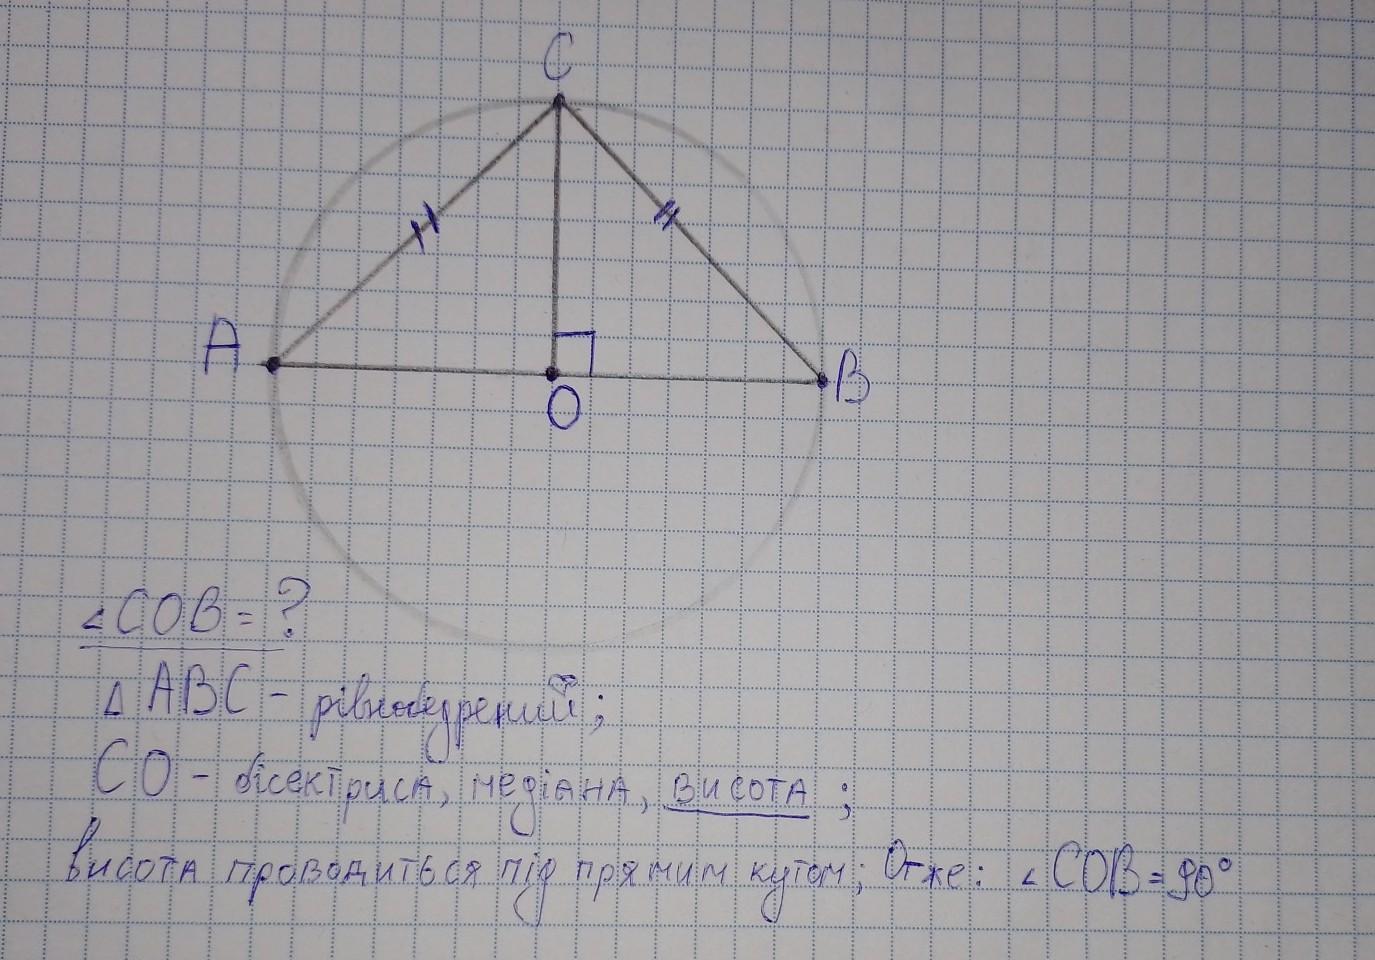 C
A
B
O
∠COB = ?
Δ ABC - рівнобедрений;
CO - бісектриса, медіана, висота;
висота проводиться під прямим кутом; Отже: ∠COB = 90°